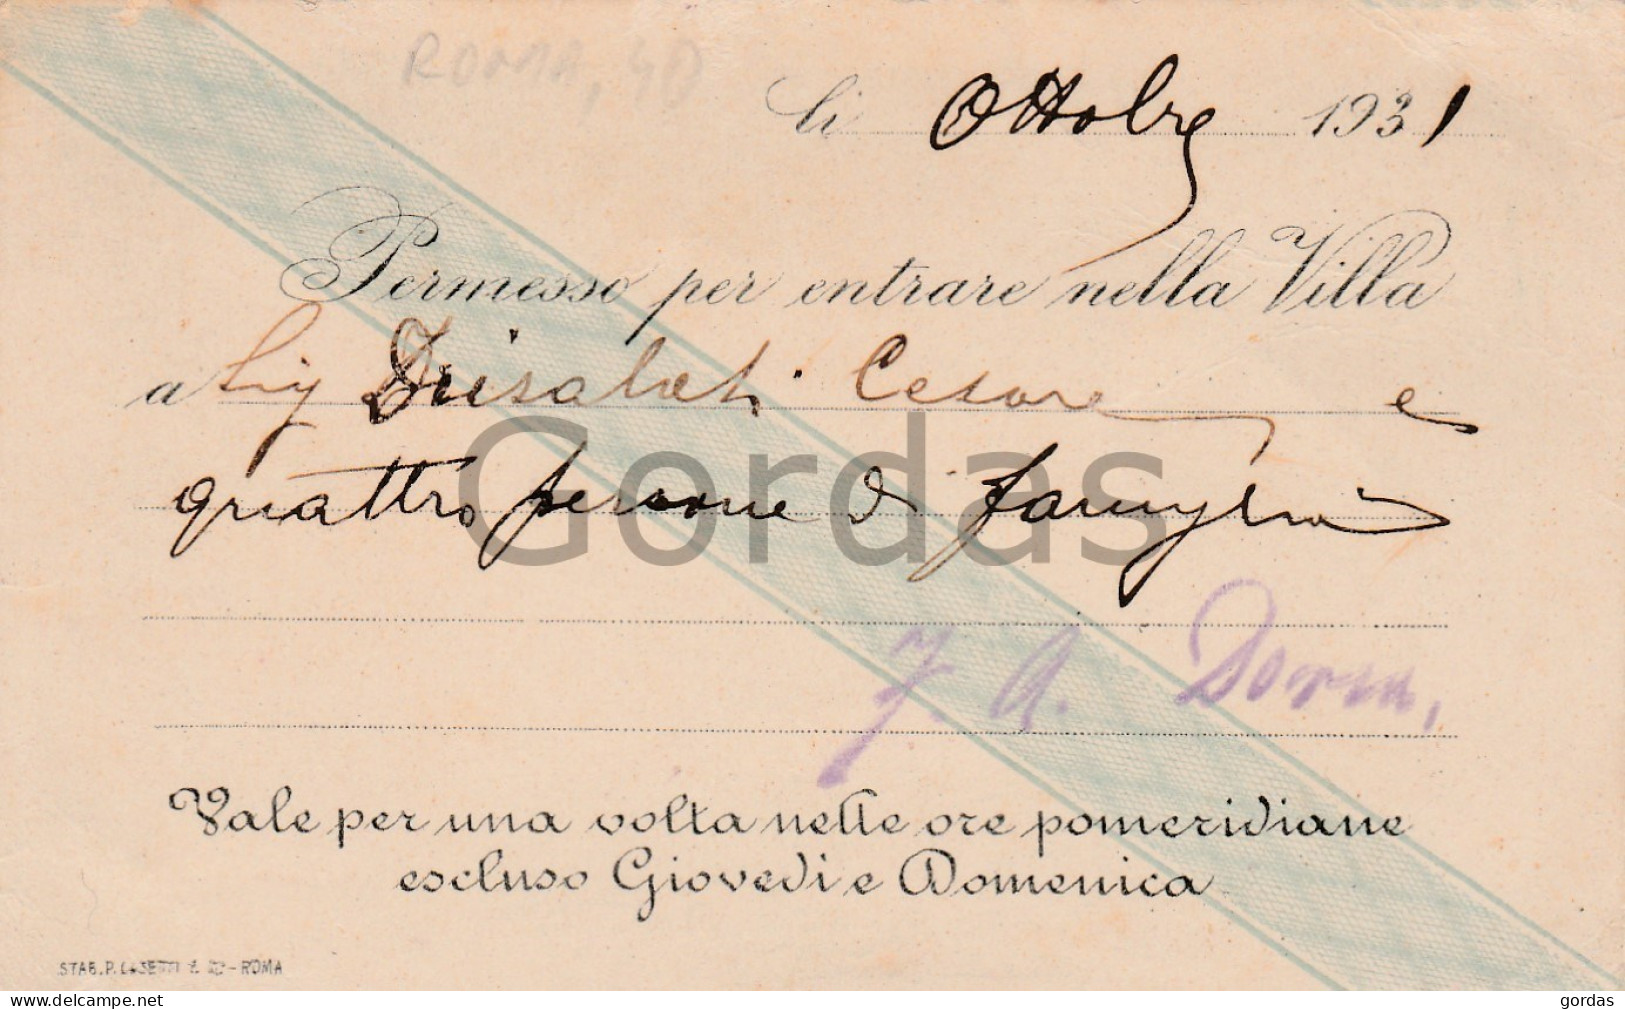 ROMA,
li Ottobre 1931
Permesso per entrare nella Villa
a Sig Cesare e
quattro persone di famiglia
Gordas
Doria,
Vale per una volta nelle ore pomeridiane
escluso Giovedi e Domenica
STAB. P. - ROMA
www.delcampe.net
gordas